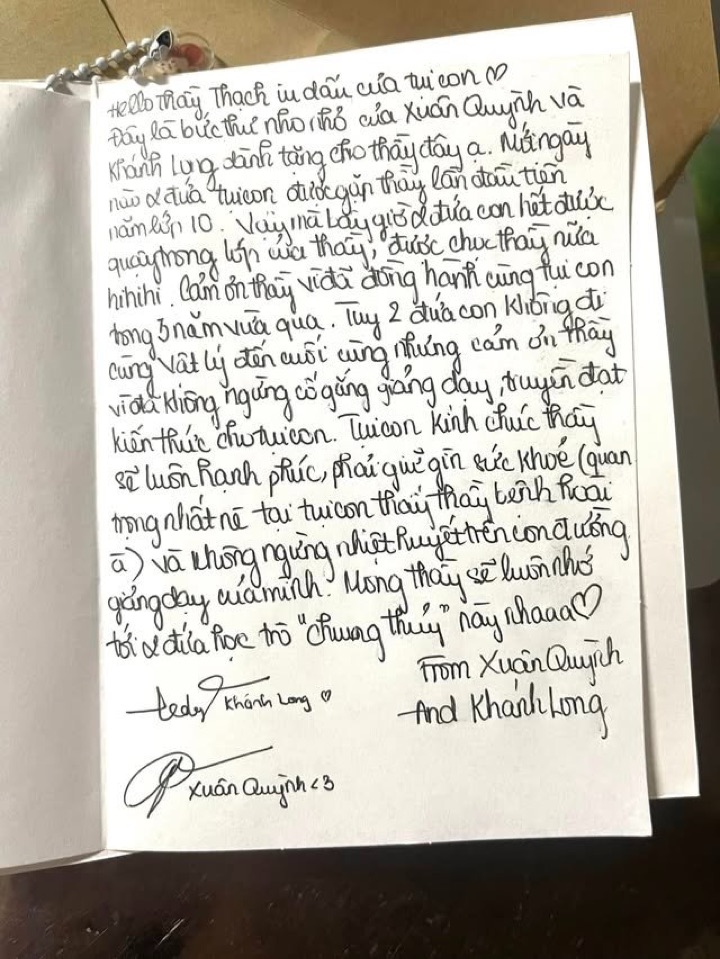 Hello thầy Thạch iu dấu của tui con ♡
Đây là bức thư nho nhỏ của Xuân Quỳnh và
Khánh Long dành tặng cho thầy đây ạ. Mới ngày
nào 2 đứa tuicon được gặp thầy lần đầu tiên
năm lớp 10. Vậy mà bây giờ 2 đứa con hết được
quậy trong lớp của thầy, được chọc thầy nữa
hihihi. Cảm ơn thầy vì đã đồng hành cùng tụi con
trong 3 năm vừa qua. Tuy 2 đứa con không đi
cùng Vật lý đến cuối cùng nhưng cảm ơn thầy
vì đã không ngừng cố gắng giảng dạy, truyền đạt
kiến thức cho tuicon. Tuicon kính chúc thầy
sẽ luôn hạnh phúc, phải giữ gìn sức khoẻ (quan
trọng nhất nè tại tụi con thấy thầy bệnh hoài
à) và không ngừng nhiệt huyết trên con đường
giảng dạy của mình. Mong thầy sẽ luôn nhớ
tới 2 đứa học trò "chung thủy" này nhaaa ♡
From Xuân Quỳnh
And Khánh Long
Khánh Long ♡
Xuân Quỳnh <3